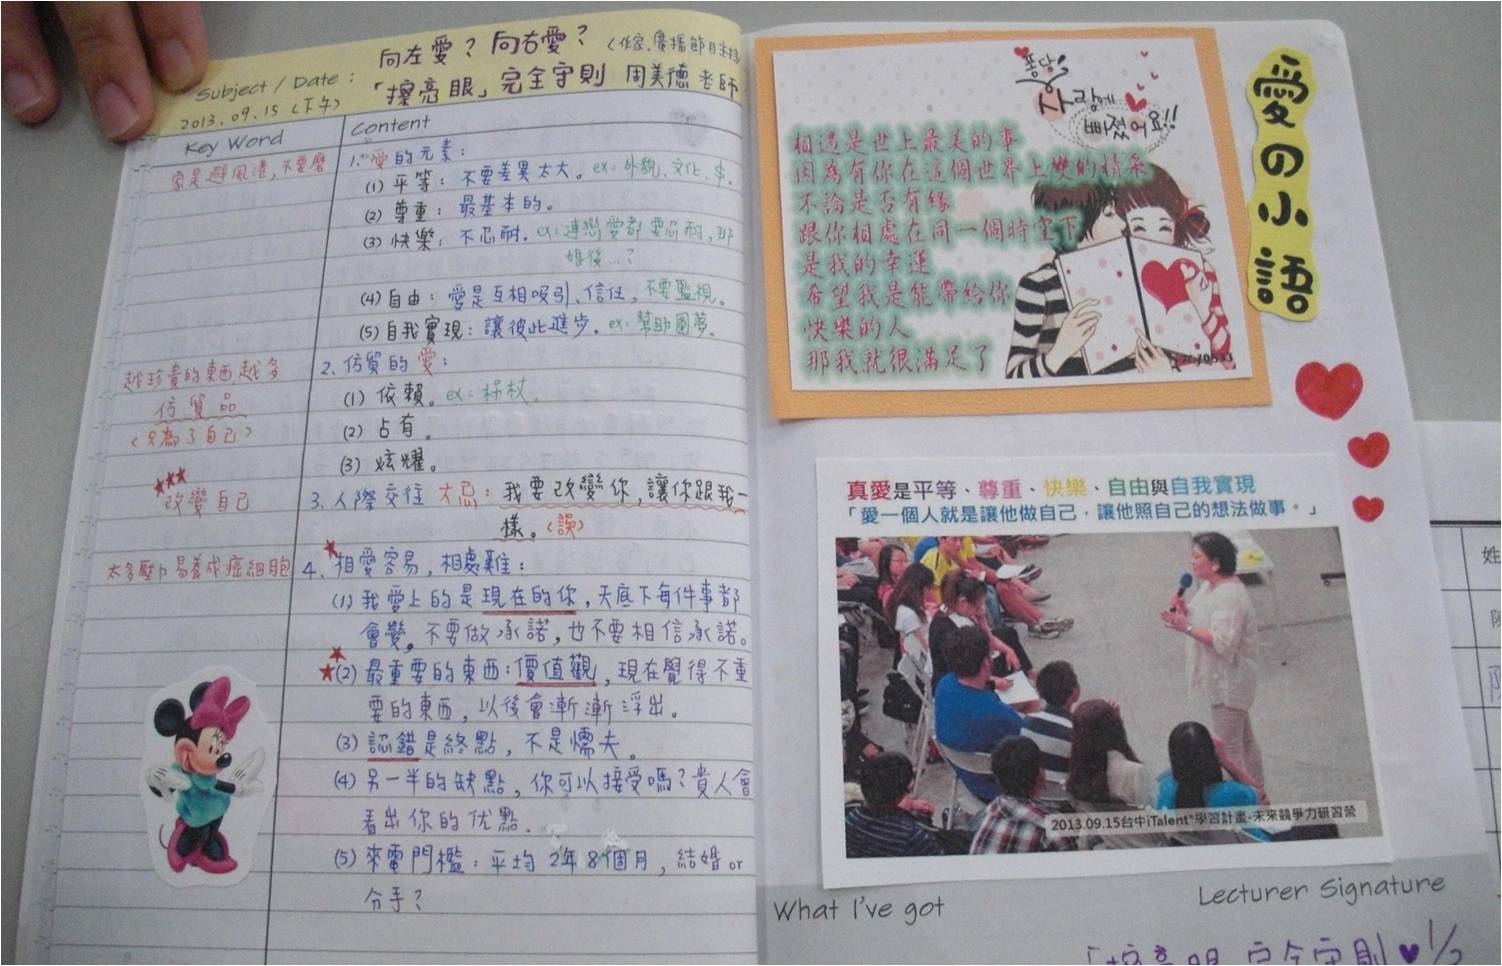 向左愛？ 向右愛？ （作家、廣播節目主持
Subject / Date : 「擦亮眼」完全守則 周美德 老師
2013.09.15（下午）
Key Word
Content
家是避風港，不要磨
1. 愛的元素：
(1) 平等：不要差異太大。ex：外貌、文化、
(2) 尊重：最基本的。
(3) 快樂：不忍耐。ex：連戀愛都要忍耐，那
婚後…？
(4) 自由：愛是互相吸引、信任，不要監視。
(5) 自我實現：讓彼此進步。ex：幫助圓夢。
越珍貴的東西越多
仿貿品
（只為了自己）
2. 仿貿的愛：
(1) 依賴。ex：柺杖。
(2) 占有。
(3) 炫耀。
改變自己
3. 人際交往 大忌：我要改變你，讓你跟我一
樣。（誤）
太多壓力易養成癌細胞
4. 相愛容易，相處難：
(1) 我愛上的是現在的你，天底下每件事都
會變。不要做承諾，也不要相信承諾。
(2) 最重要的東西：價值觀，現在覺得不重
要的東西，以後會漸漸浮出。
(3) 認錯是終點，不是懦夫。
(4) 另一半的缺點，你可以接受嗎？貴人會
看出你的优點.
(5) 來電門檻：平均 2年8個月，結婚 or
分手？
퐁당
사랑에
빠졌어요!!
相遇是世上最美的事
因為有你在這個世界上變的精采
不論是否有緣
跟你相處在同一個時空下
是我的幸運
希望我是能帶給你
快樂的人
那我就很滿足了
愛の小語
真愛是平等、尊重、快樂、自由與自我實現
「愛一個人就是讓他做自己，讓他照自己的想法做事。」
2013.09.15台中iTalent+學習計畫-未來競爭力研習營
What I've got
Lecturer Signature
「擦亮眼 完全守則 ♥ 1/2
姓